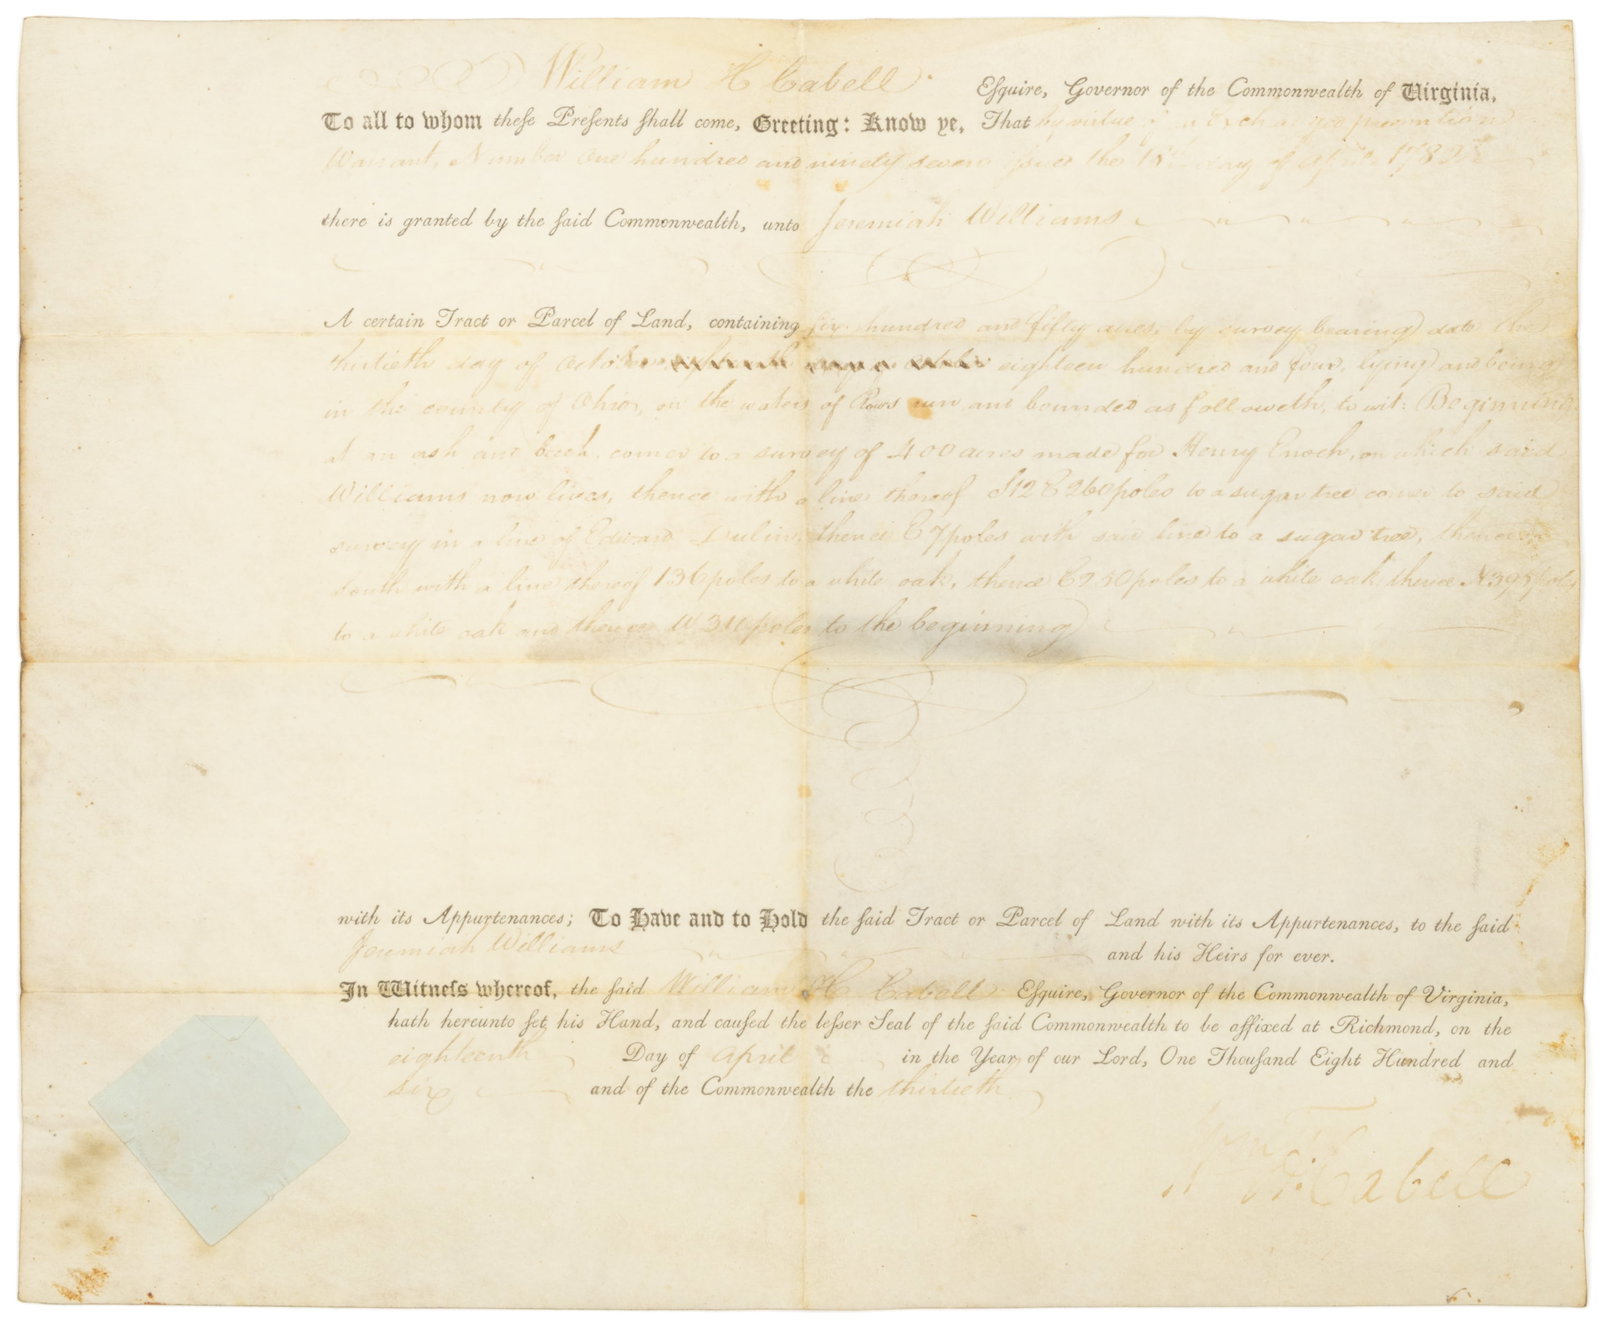 William H Cabell Esquire, Governor of the Commonwealth of Virginia,
To all to whom theſe Preſents ſhall come, Greeting: Know ye, That by virtue of an Exchanged preemption
Warrant, Number one hundred and ninety seven iſsued the day of April 1782
there is granted by the ſaid Commonwealth, unto Jeremiah Williams
A certain Tract or Parcel of Land, containing six hundred and fifty acres, by survey bearing date the
thirtieth day of October eighteen hundred and four, lying and being
in the county of Ohio, on the waters of run and bounded as followeth, to wit: Beginning
at an ash and beech corner to a survey of 400 acres made for Henry Enoch, on which said
Williams now lives, thence with a line thereof S12 E 260 poles to a sugar tree corner to said
survey in a line of Edward Dulin, thence E 7 poles with said line to a sugar tree, thence
south with a line thereof 136 poles to a white oak, thence E 250 poles to a white oak thence N 395 poles
to a white oak and thence W 311 poles to the beginning
with its Appurtenances; To Have and to Hold the ſaid Tract or Parcel of Land with its Appurtenances, to the ſaid
Jeremiah Williams and his Heirs for ever.
In Witneſs whereof, the ſaid William H Cabell Eſquire, Governor of the Commonwealth of Virginia,
hath hereunto ſet his Hand, and cauſed the leſſer Seal of the ſaid Commonwealth to be affixed at Richmond, on the
eighteenth Day of april in the Year of our Lord, One Thouſand Eight Hundred and
six and of the Commonwealth the thirtieth
Wm H: Cabell